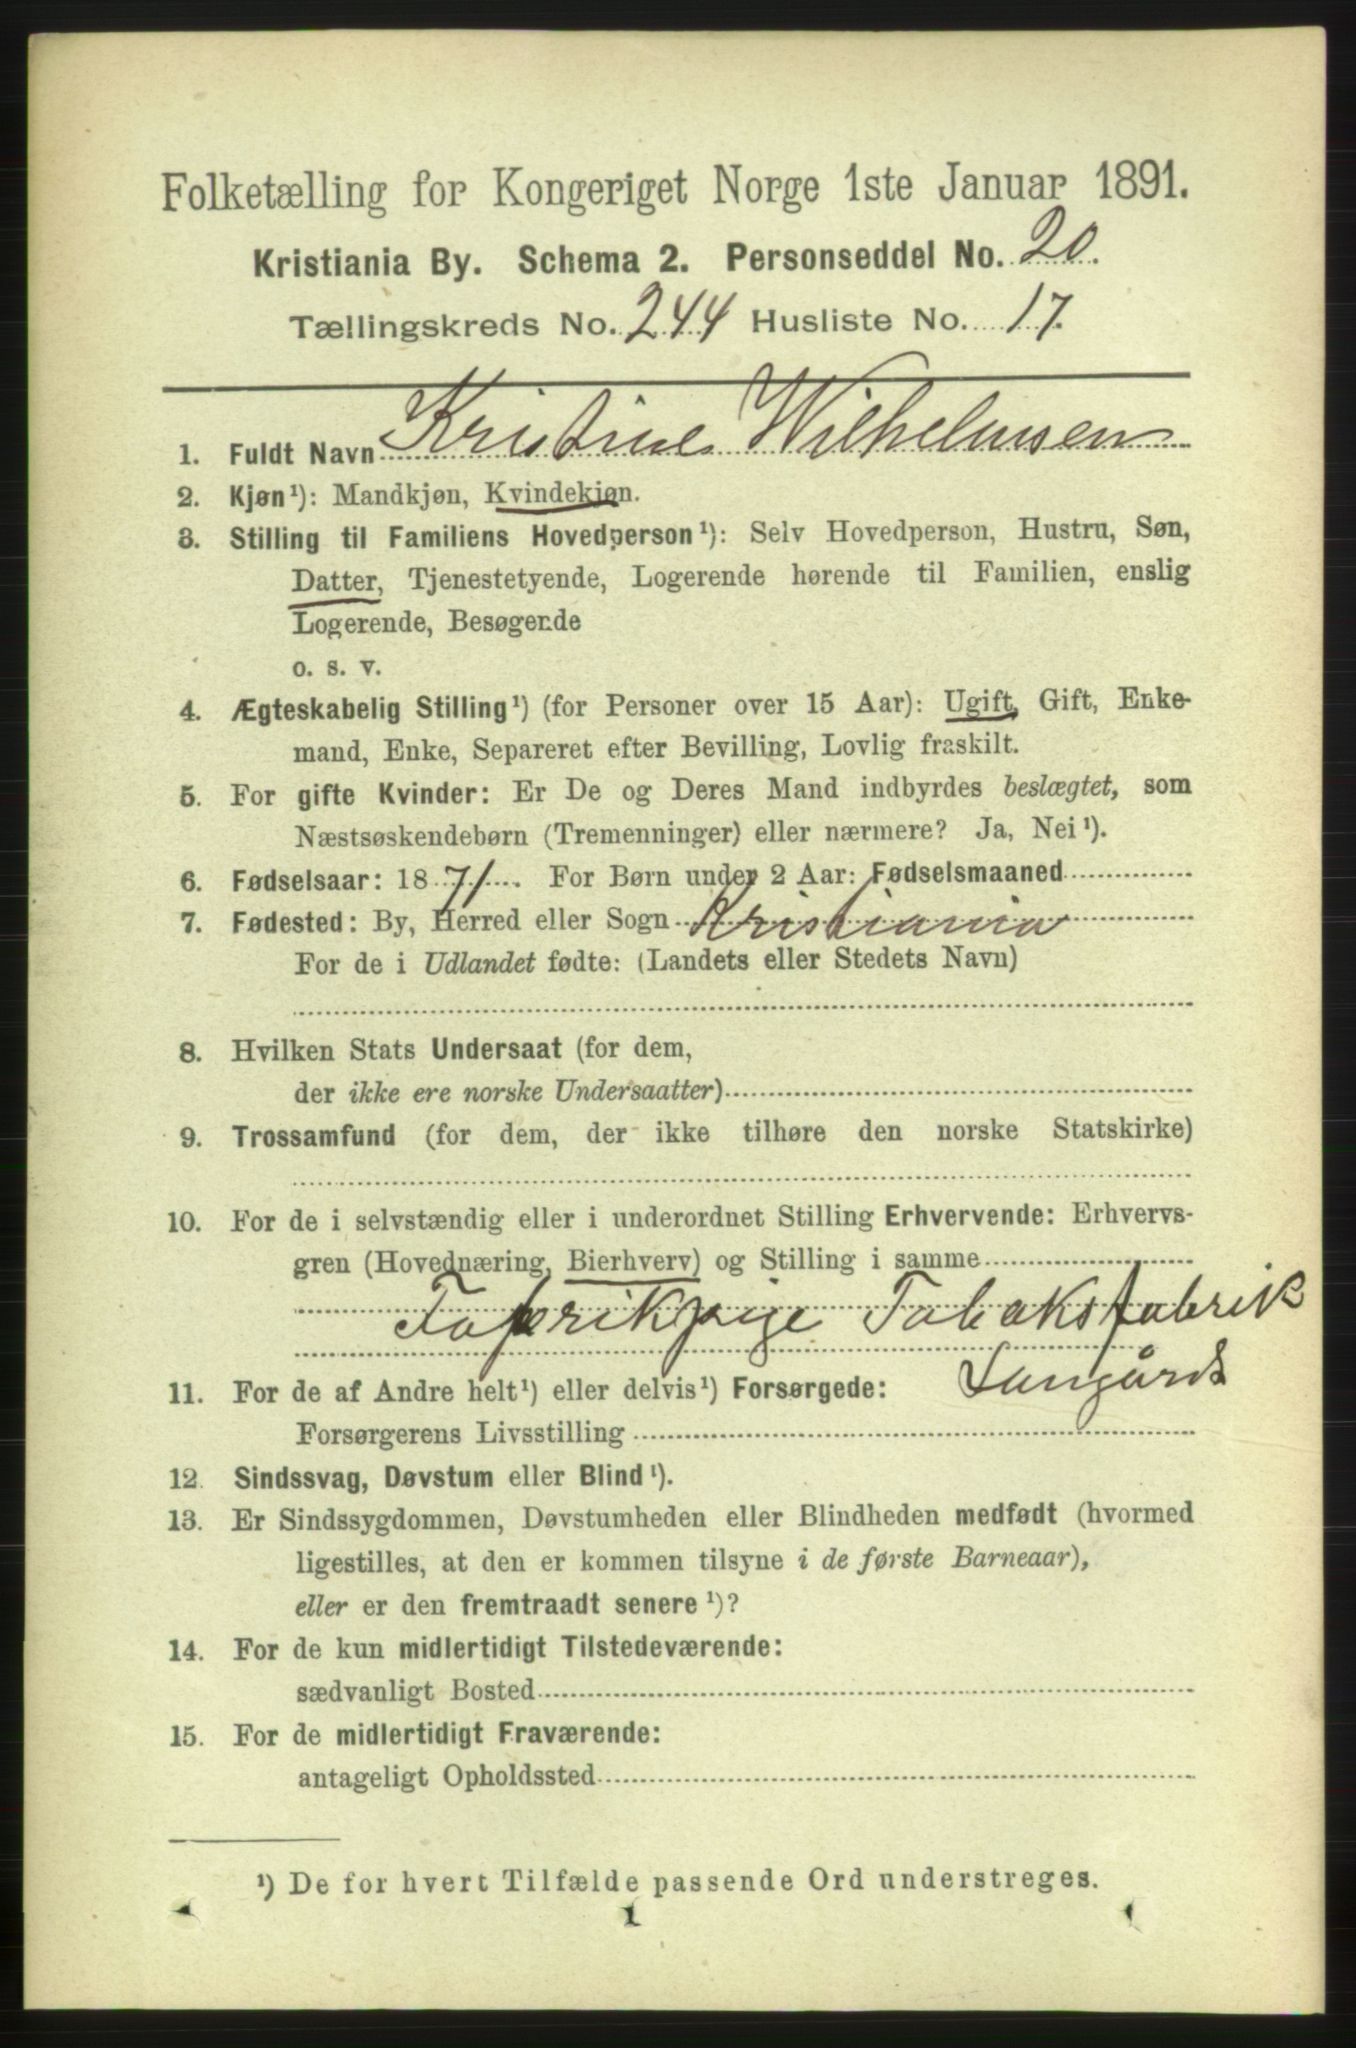 Folketælling for Kongeriget Norge 1ste Januar 1891.
Kristiania By. Schema 2. Personseddel No. 20.
Tællingskreds No. 244 Husliste No. 17.
1. Fuldt Navn Kristine Wilhelmsen
2. Kjøn¹): Mandkjøn, Kvindekjøn.
3. Stilling til Familiens Hovedperson¹): Selv Hovedperson, Hustru, Søn,
Datter, Tjenestetyende, Logerende hørende til Familien, enslig
Logerende, Besøgende
o. s. v.
4. Ægteskabelig Stilling¹) (for Personer over 15 Aar): Ugift, Gift, Enke-
mand, Enke, Separeret efter Bevilling, Lovlig fraskilt.
5. For gifte Kvinder: Er De og Deres Mand indbyrdes beslægtet, som
Næstsøskendebørn (Tremenninger) eller nærmere? Ja, Nei¹).
6. Fødselsaar: 1871. For Børn under 2 Aar: Fødselsmaaned
7. Fødested: By, Herred eller Sogn Kristiania
For de i Udlandet fødte: (Landets eller Stedets Navn)
8. Hvilken Stats Undersaat (for dem,
der ikke ere norske Undersaatter)
9. Trossamfund (for dem, der ikke tilhøre den norske Statskirke)
10. For de i selvstændig eller i underordnet Stilling Erhvervende: Erhvervs-
gren (Hovednæring, Bierhverv) og Stilling i samme
Fabrikpige Tobaksfabrik
Langårds
11. For de af Andre helt¹) eller delvis¹) Forsørgede:
Forsørgerens Livsstilling
12. Sindssvag, Døvstum eller Blind¹).
13. Er Sindssygdommen, Døvstumheden eller Blindheden medfødt (hvormed
ligestilles, at den er kommen tilsyne i de første Barneaar),
eller er den fremtraadt senere¹)?
14. For de kun midlertidigt Tilstedeværende:
sædvanligt Bosted
15. For de midlertidigt Fraværende:
antageligt Opholdssted
¹) De for hvert Tilfælde passende Ord understreges.